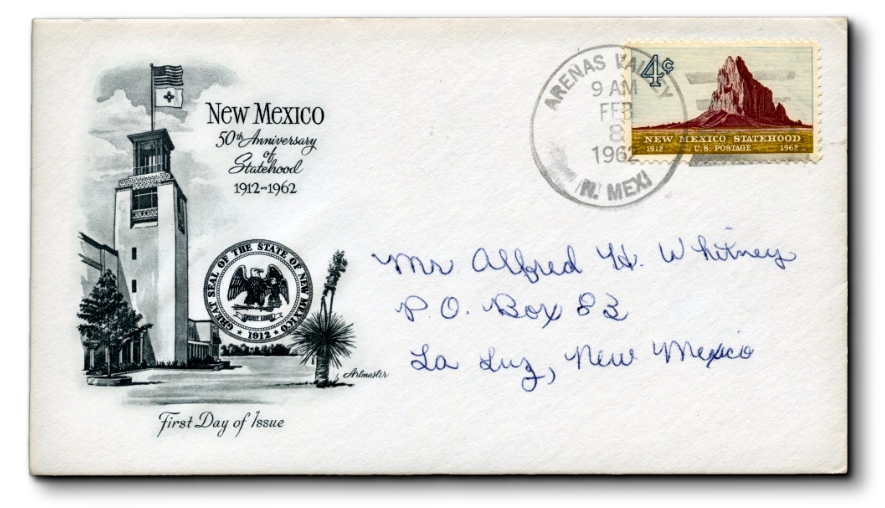 New Mexico
50th Anniversary
of
Statehood
1912-1962
GREAT SEAL OF THE STATE OF NEW MEXICO
1912
Artmaster
First Day of Issue
ARENAS VALLEY
9 AM
FEB
8
1962
N. MEX
4¢
NEW MEXICO STATEHOOD
1912 U.S. POSTAGE 1962
Mr Alfred H. Whitney
P.O. Box 83
La Luz, New Mexico